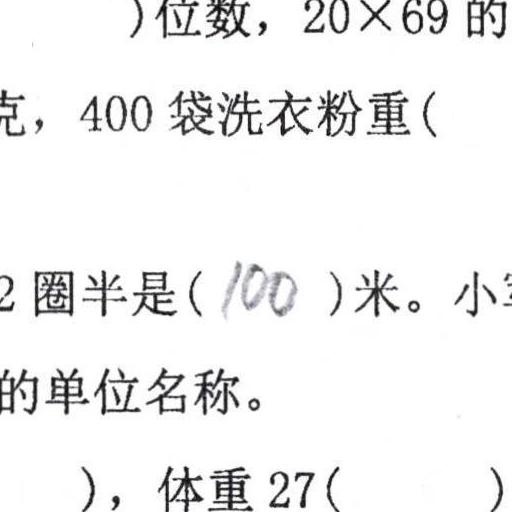 )位数，20×69的
克，400袋洗衣粉重(
2圈半是( 100 )米。小
的单位名称。
)，体重27( )